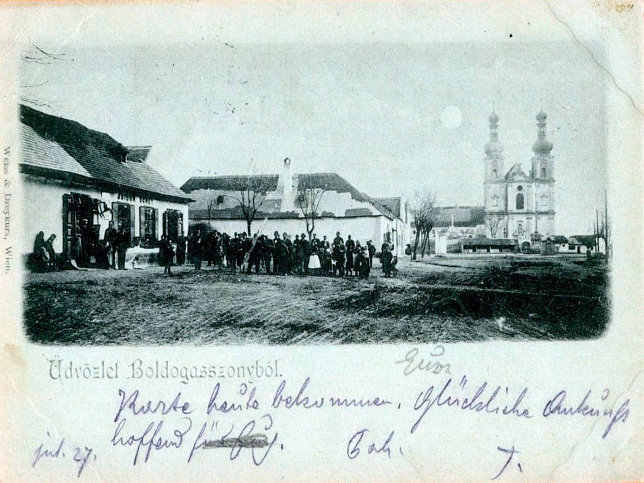 Weiss & Dreykurs, Wien.
Üdvözlet Boldogasszonyból.
Karte heute bekommen. Glückliche Ankunft
hoffend für
jul. 27.